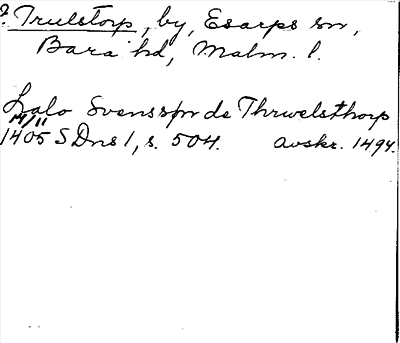 ? Trulstorp, by, Esarps sn,
Bara hd, Malm. l.
Lalo Svensson de Thrwelsthorp
14/11
1405 SDns 1, s. 504. avskr. 1494.